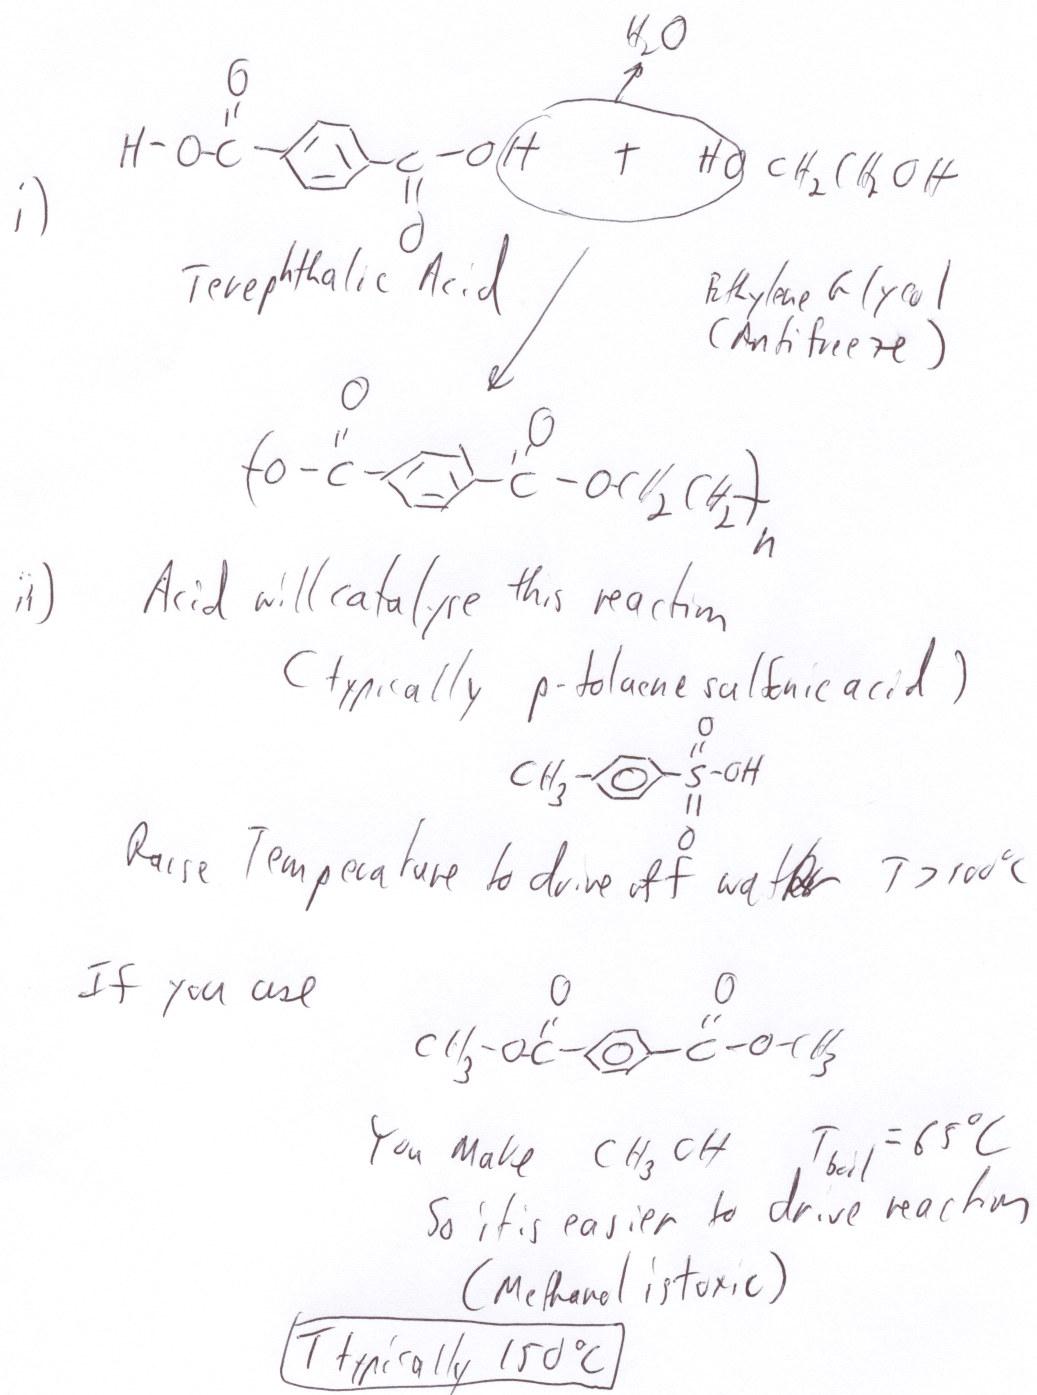 H2O
O
H-O-C- -C-OH + HO CH2CH2OH
O
i)
Terephthalic Acid
Ethylene Glycol
(Antifreeze)
O O
(O-C- -C-OCH2CH2)n
ii) Acid will catalyse this reaction
(typically p-toluene sulfonic acid)
O
CH3- -S-OH
O
Raise Temperature to drive off water T>100°C
If you use
O O
CH3-OC- -C-O-CH3
You Make CH3OH Tboil=65°C
So it is easier to drive reaction
(Methanol is toxic)
T typically 150°C